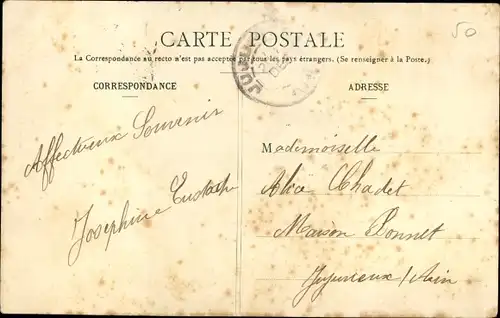 50
CARTE POSTALE
La Correspondance au recto n'est pas acceptée par tous les pays étrangers. (Se renseigner à la Poste.)
CORRESPONDANCE
ADRESSE
Affectueux Souvenir
Joséphine Eustache
Mademoiselle
Alice Chadet
Maison Bonnet
Jujurieux / Ain